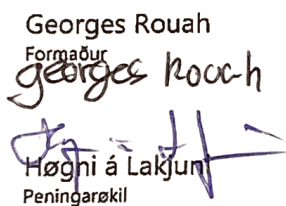 Georges Rouah
Formaður
georges Rouah
Høgni á Lakjuni
Peningarøkil